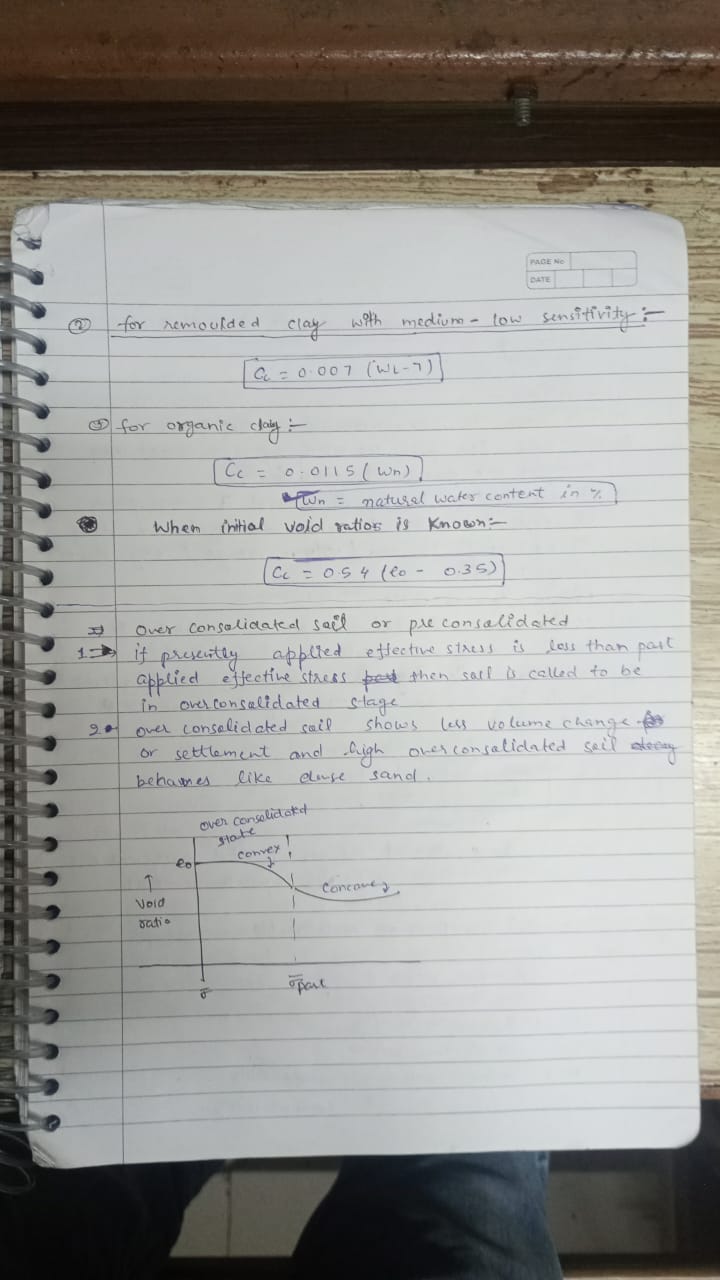 PAGE No
DATE
② for remoulded clay with medium - low sensitivity :-
Cc = 0.007 (WL-7)
③ for organic clay :-
Cc = 0.0115 (Wn)
Wn = natural water content in %
When initial void ratios is Known :-
Cc = 0.54 (eo - 0.35)
⇒ Over consolidated soil or pre consolidated
1 → if presently applied effective stress is less than past
applied effective stress then soil is called to be
in over consolidated stage
2 • over consolidated soil shows less volume change
or settlement and high over consolidated soil
behaves like dense sand.
over consolidated
state
convex
eo
concave
↑
Void
ratio
σ̄
σ̄past